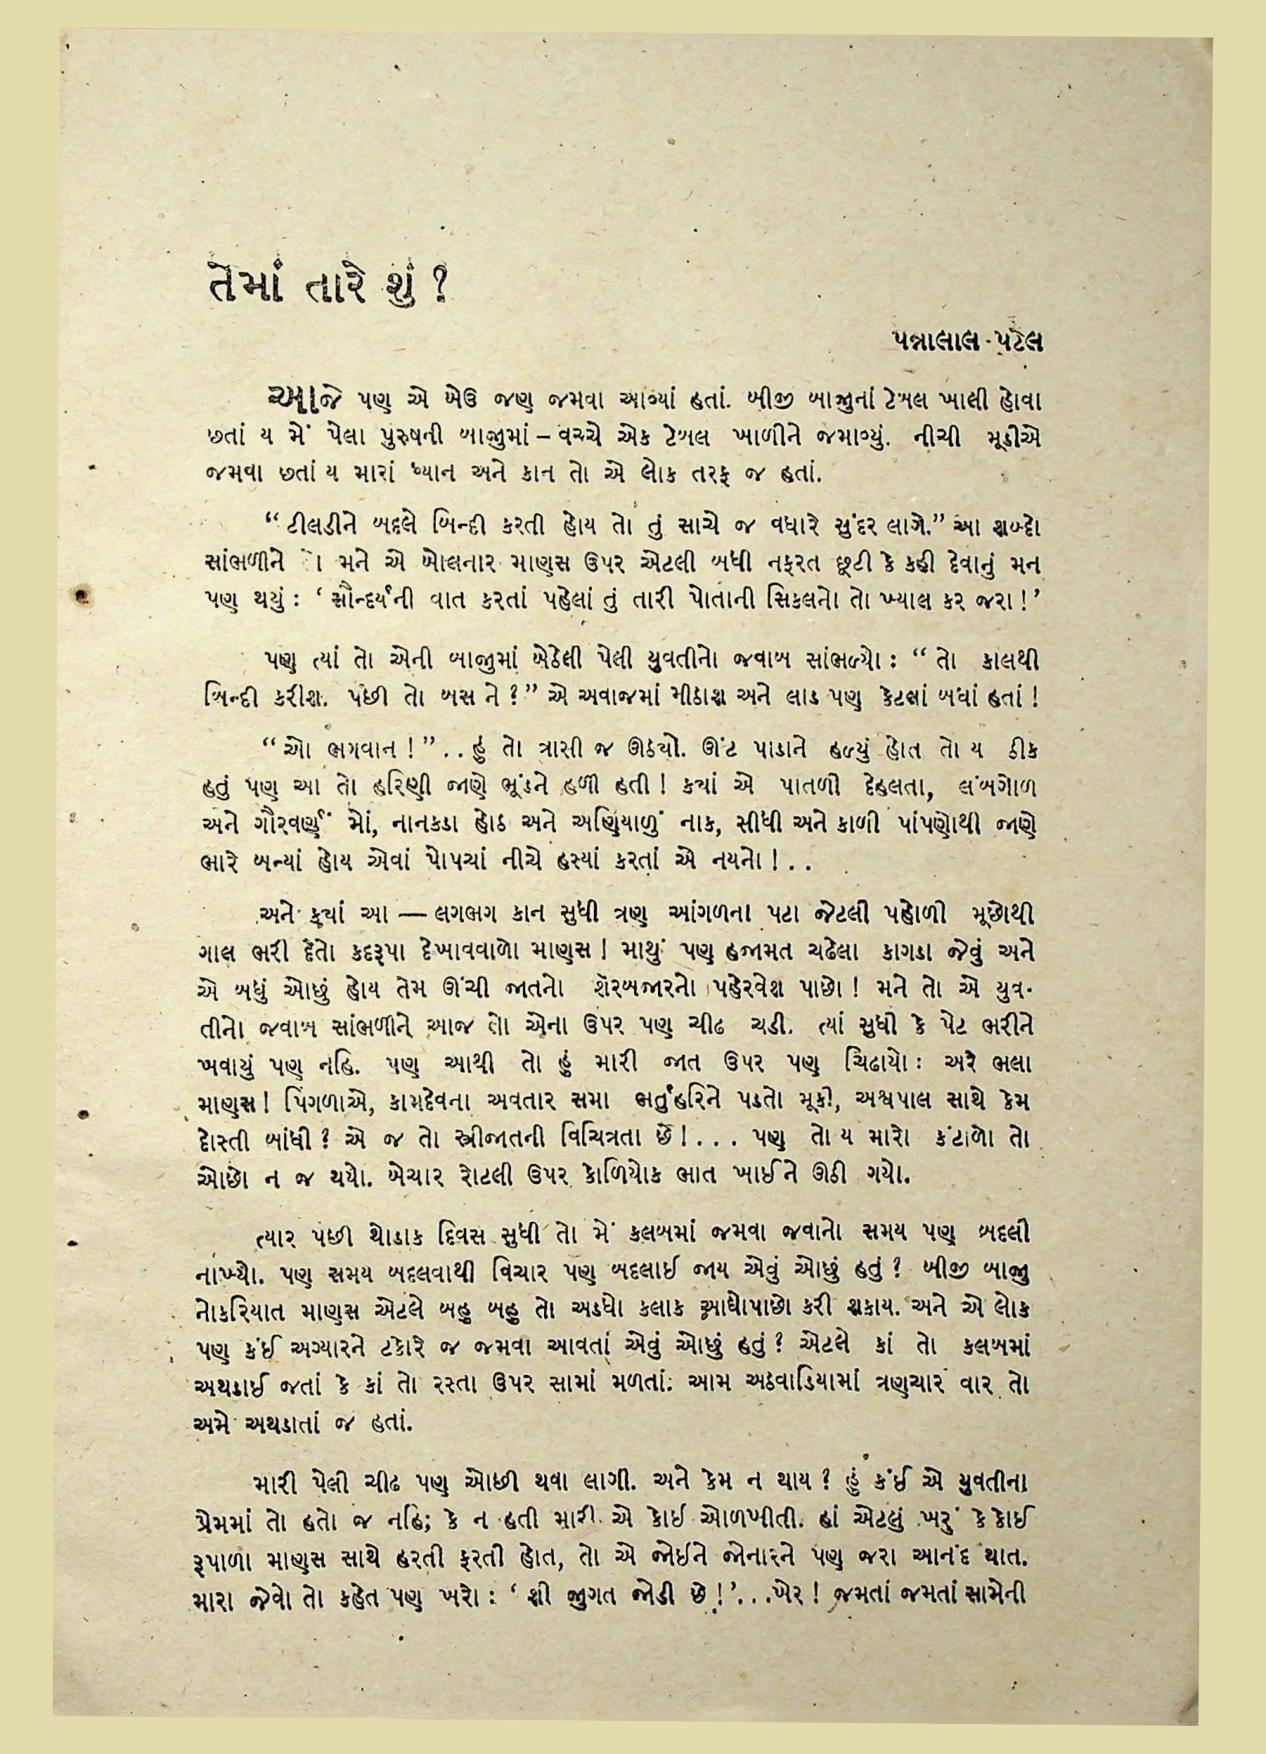 તેમાં તારે શું ?
પન્નાલાલ પટેલ
આજે પણ એ બેઉ જણ જમવા આવ્યાં હતાં. બીજી બાજુનાં ટેબલ ખાલી હોવા
છતાં ય મેં પેલા પુરુષની બાજુમાં – વચ્ચે એક ટેબલ ખાળીને જમાવ્યું. નીચી મૂડીએ
જમવા છતાં ય મારાં ધ્યાન અને કાન તો એ લોક તરફ જ હતાં.
“ ટીલડીને બદલે બિન્દી કરતી હોય તો તું સાચે જ વધારે સુંદર લાગે.” આ શબ્દો
સાંભળીને મને એ બોલનાર માણસ ઉપર એટલી બધી નફરત છૂટી કે કહી દેવાનું મન
પણ થયું : ‘ સૌન્દર્યની વાત કરતાં પહેલાં તું તારી પોતાની સિકલનો તો ખ્યાલ કર જરા ! ’
પણ ત્યાં તો એની બાજુમાં બેઠેલી પેલી યુવતીનો જવાબ સાંભળ્યો : “ તો કાલથી
બિન્દી કરીશ. પછી તો બસ ને ? ” એ અવાજમાં મીઠાશ અને લાડ પણ કેટલાં બધાં હતાં !
“ ઓ ભગવાન ! ” . . હું તો ત્રાસી જ ઊઠયો. ઊંટ પાડાને હળ્યું હોત તો ય ઠીક
હતું પણ આ તો હરિણી જાણે ભૂંડને હળી હતી ! ક્યાં એ પાતળી દેહલતા, લંબગોળ
અને ગૌરવર્ણું મોં, નાનકડા હોઠ અને અણિયાળું નાક, સીધી અને કાળી પાંપણોથી જાણે
ભારે બન્યાં હોય એવાં પોપચાં નીચે હસ્યાં કરતાં એ નયનો ! . .
અને ક્યાં આ — લગભગ કાન સુધી ત્રણ આંગળના પટા જેટલી પહોળી મૂછોથી
ગાલ ભરી દેતો કદરૂપા દેખાવવાળો માણસ ! માથું પણ હજામત ચઢેલા કાગડા જેવું અને
એ બધું ઓછું હોય તેમ ઊંચી જાતનો શૅરબજારનો પહેરવેશ પાછો ! મને તો એ યુવ-
તીનો જવાબ સાંભળીને આજ તો એના ઉપર પણ ચીઢ ચડી. ત્યાં સુધી કે પેટ ભરીને
ખવાયું પણ નહિ. પણ આથી તો હું મારી જાત ઉપર પણ ચિઢાયો : અરે ભલા
માણસ ! પિંગળાએ, કામદેવના અવતાર સમા ભર્તુંહરિને પડતો મૂકી, અશ્વપાલ સાથે કેમ
દોસ્તી બાંધી ? એ જ તો સ્ત્રીજાતની વિચિત્રતા છે ! . . . પણ તો ય મારો કંટાળો તો
ઓછો ન જ થયો. બેચાર રોટલી ઉપર કોળિયોક ભાત ખાઈને ઊઠી ગયો.
ત્યાર પછી થોડાક દિવસ સુધી તો મેં કલબમાં જમવા જવાનો સમય પણ બદલી
નાંખ્યો. પણ સમય બદલવાથી વિચાર પણ બદલાઈ જાય એવું ઓછું હતું ? બીજી બાજુ
નોકરિયાત માણસ એટલે બહુ બહુ તો અડધો કલાક આઘોપાછો કરી શકાય. અને એ લોક
પણ કંઈ અગ્યારને ટકોરે જ જમવા આવતાં એવું ઓછું હતું ? એટલે કાં તો કલબમાં
અથડાઈ જતાં કે કાં તો રસ્તા ઉપર સામાં મળતાં. આમ અઠવાડિયામાં ત્રણચાર વાર તો
અમે અથડાતાં જ હતાં.
મારી પેલી ચીઢ પણ ઓછી થવા લાગી. અને કેમ ન થાય ? હું કંઈ એ યુવતીના
પ્રેમમાં તો હતો જ નહિ; કે ન હતી મારી એ કોઈ ઓળખીતી. હાં એટલું ખરું કે કોઈ
રૂપાળા માણસ સાથે હરતી ફરતી હોત, તો એ જોઈને જોનારને પણ જરા આનંદ થાત.
મારા જેવો તો કહેત પણ ખરો : ‘ શી જુગત જોડી છે ! ’. . .ખેર ! જમતાં જમતાં સામેની